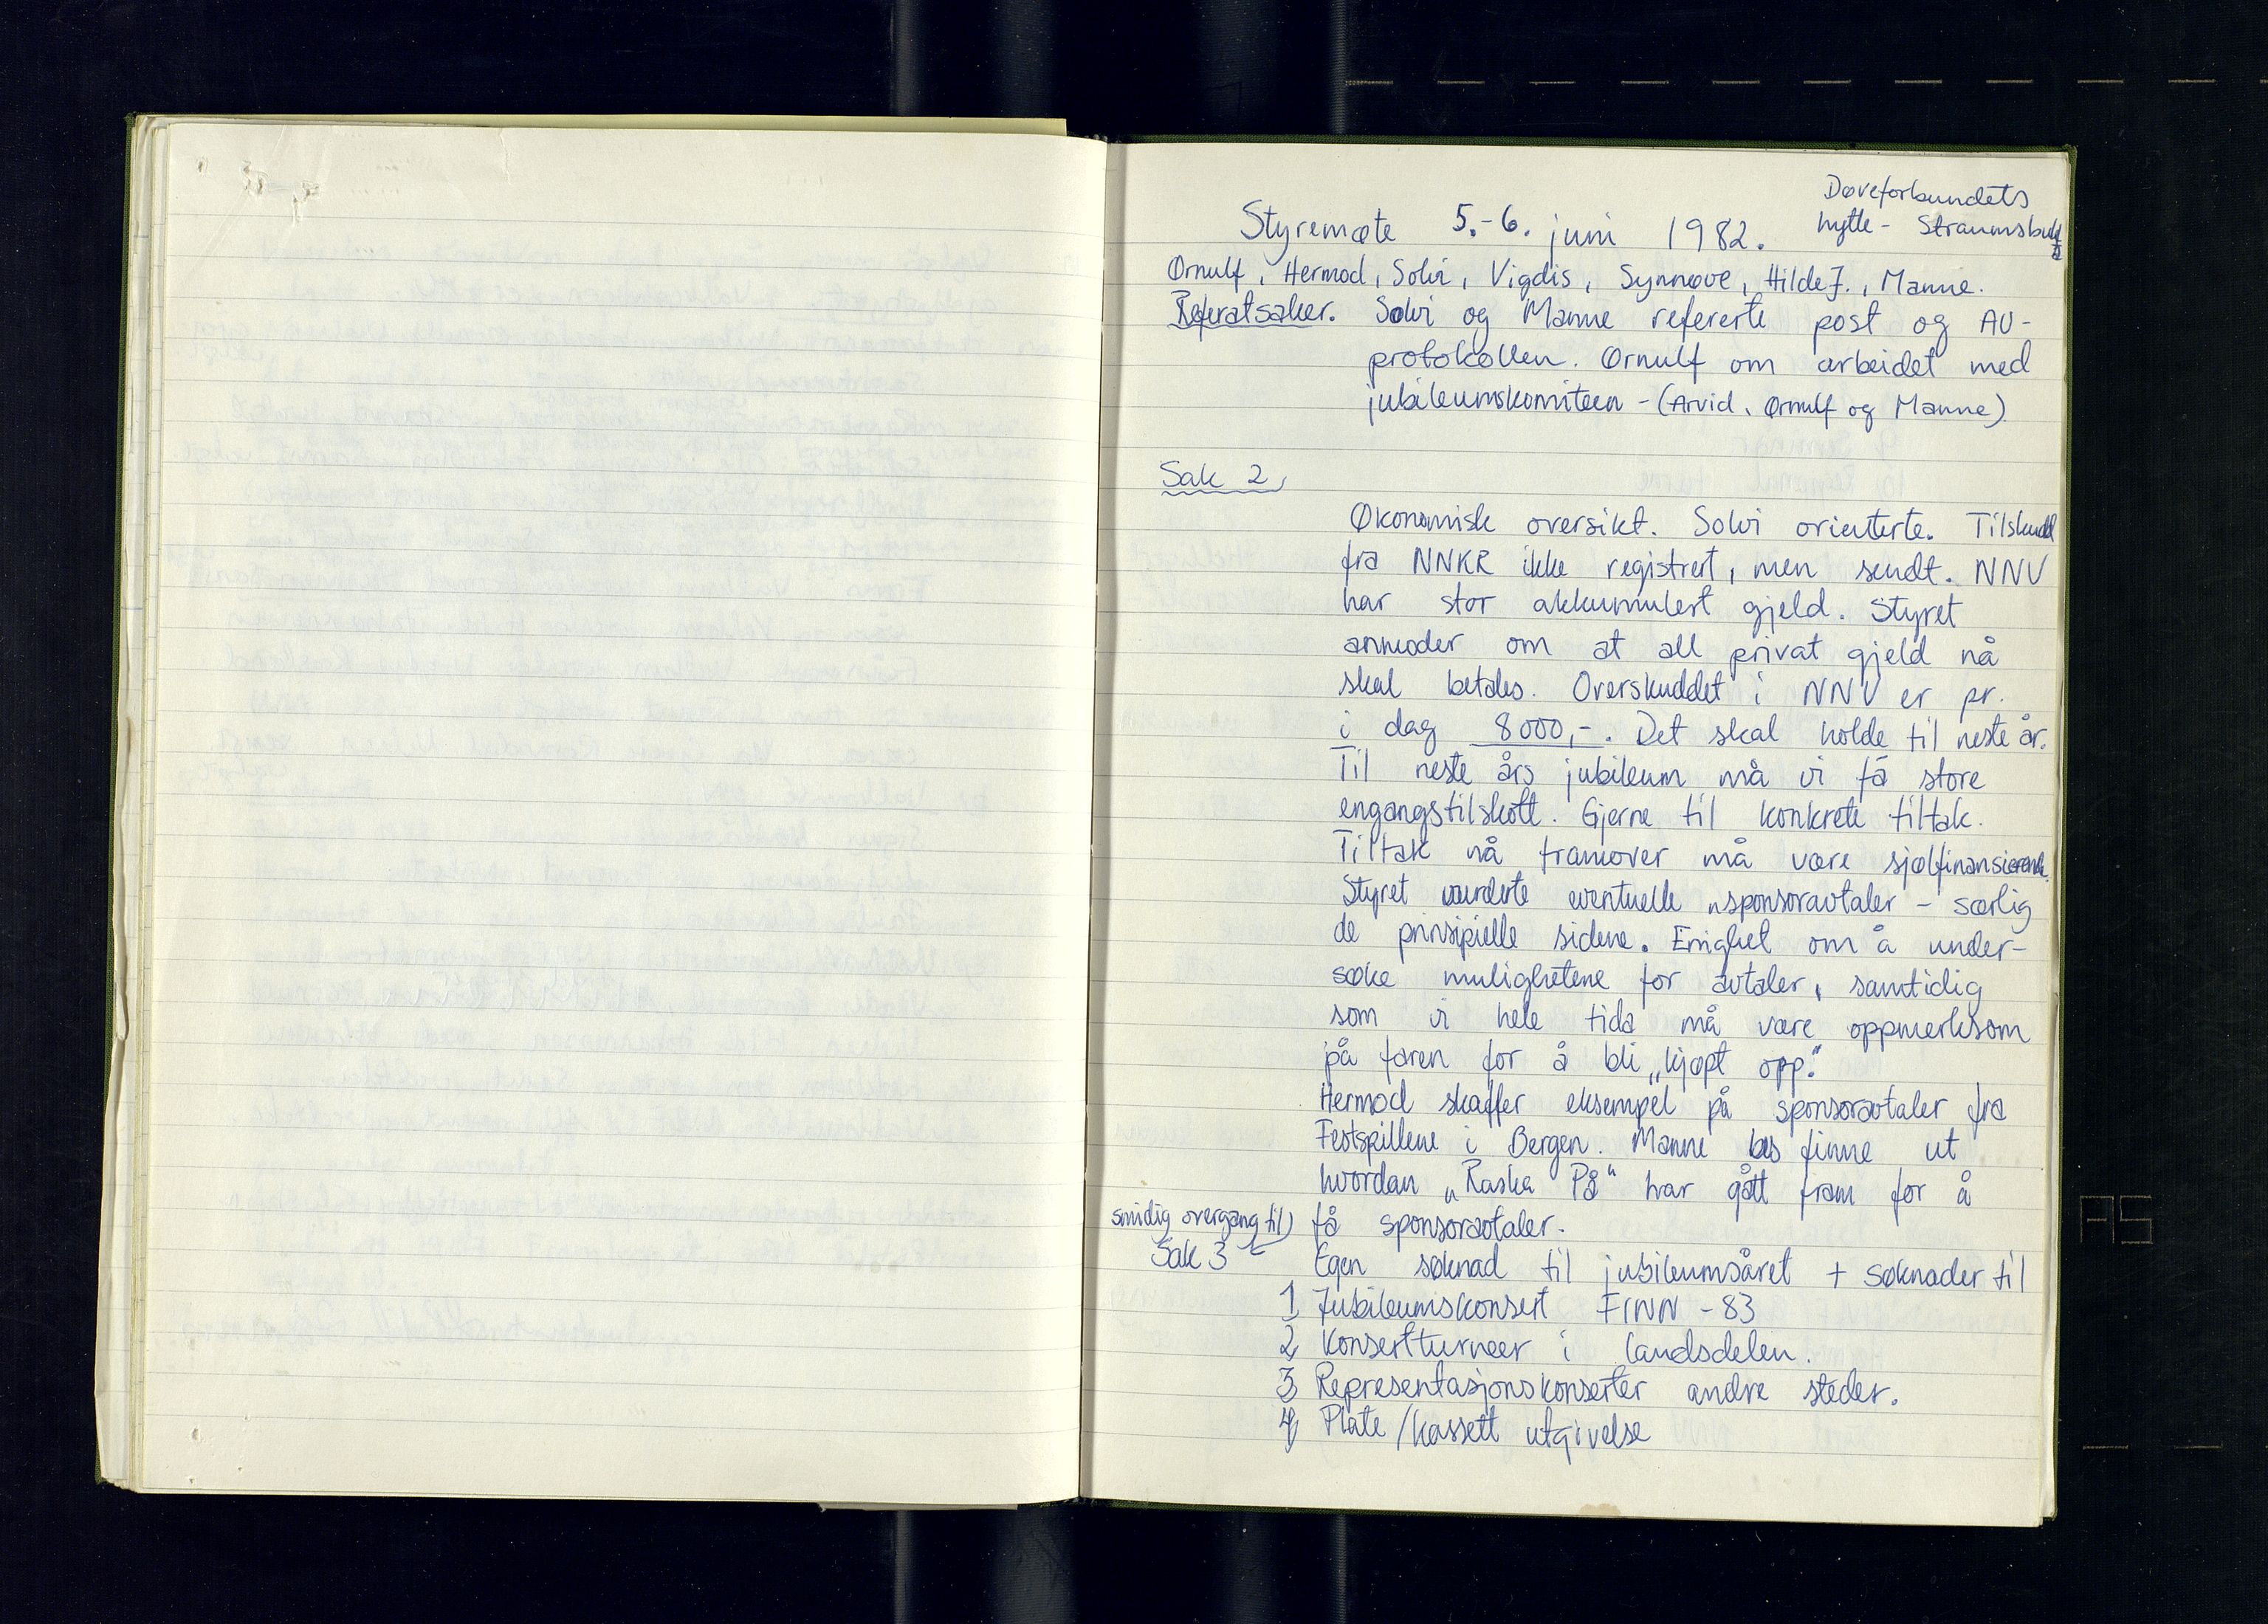 Døveforbundets
hytte - Straumsbukt
Styremøte 5.-6. juni 1982.
Ørnulf, Hermod, Solvi, Vigdis, Synnøve, Hilde J., Manne.
Referatsaker. Solvi og Manne refererte post og AU-
protokollen. Ørnulf om arbeidet med
jubileumskomiteen - (Arvid, Ørnulf og Manne).
Sak 2,
Økonomisk oversikt. Solvi orienterte. Tilskudd
fra NNKR ikke registrert, men sendt. NNV
har stor akkumulert gjeld. Styret
anmoder om at all privat gjeld nå
skal betales. Overskuddet i NNV er pr.
i dag 8000,-. Det skal holde til neste år.
Til neste års jubileum må vi få store
engangstilskott. Gjerne til konkrete tiltak.
Tiltak nå framover må være sjølfinansierende.
Styret vurderte eventuelle sponsoravtaler - særlig
de prinsipielle sidene. Enighet om å under-
søke mulighetene for avtaler, samtidig
som vi hele tida må være oppmerksom
på faren for å bli „kjøpt opp."
Hermod skaffer eksempel på sponsoravtaler fra
Festspillene i Bergen. Manne bes finne ut
hvordan „Raska På" har gått fram for å
få sponsoravtaler.
smidig overgang til)
Sak 3
Egen søknad til jubileumsåret + søknader til
1 Jubileumskonsert FINN - 83
2 Konsertturneer i landsdelen.
3 Representasjonskonserter andre steder.
4 Plate/kassett utgivelse